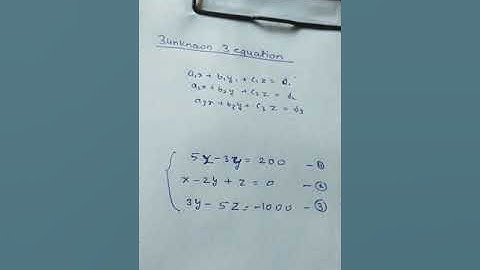 3unknown 3 equation
a₁x + b₁y + c₁z = d₁
a₂x + b₂y + c₂z = d₂
a₃x + b₃y + c₃z = d₃
5x - 3y = 200 - ①
x - 2y + z = 0 - ②
3y - 5z = -1000 - ③